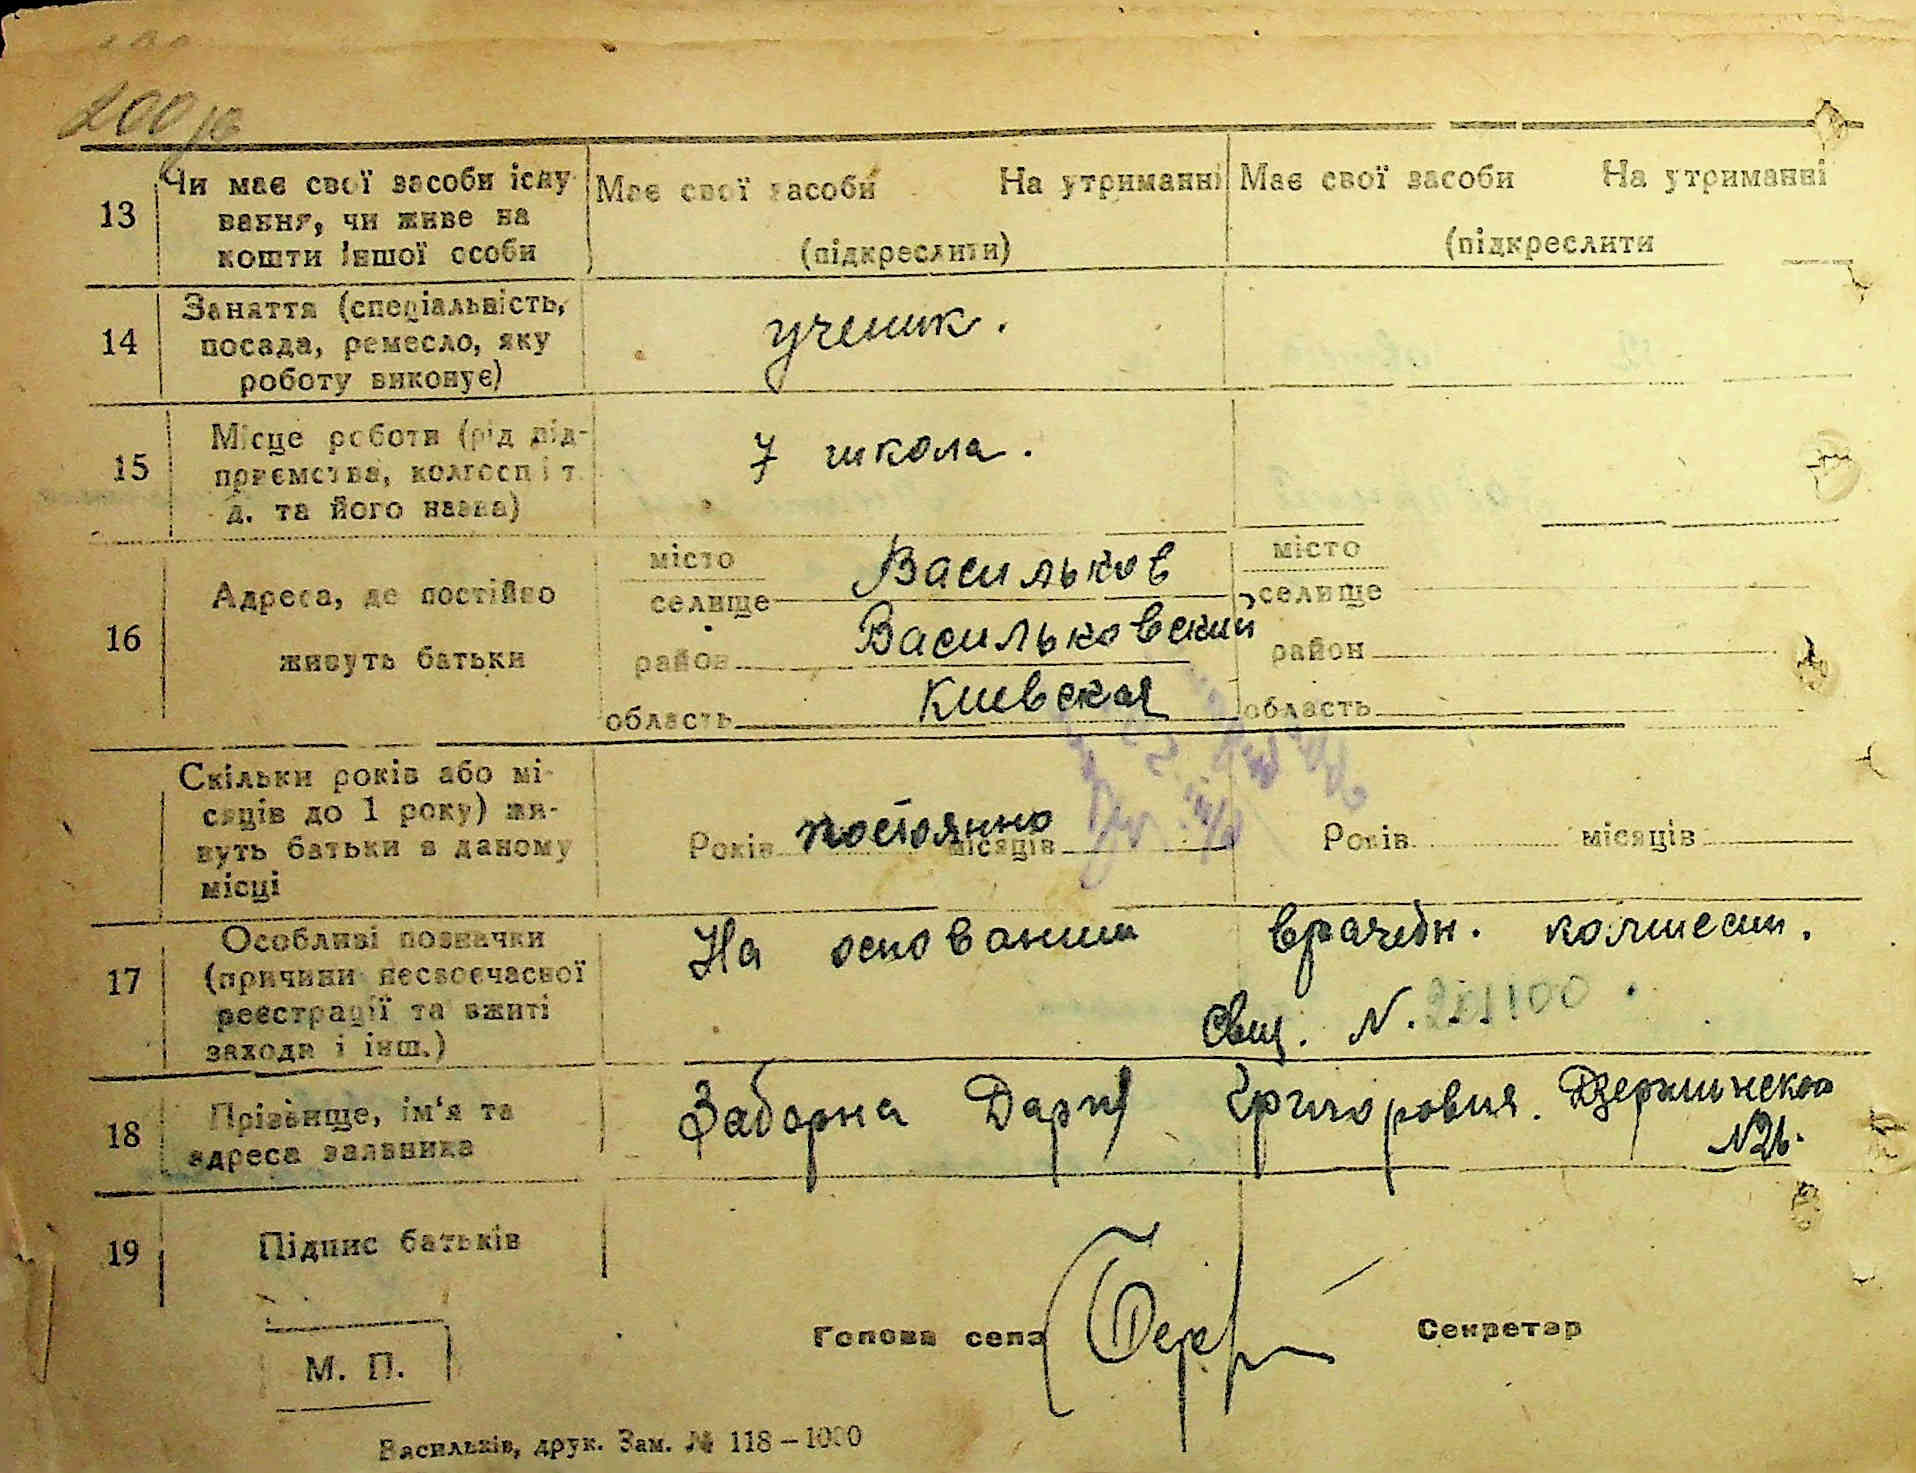 200
13 Чи має свої засоби існу-
вання, чи живе на
кошти іншої особи
Має свої засоби На утриманні
(підкреслити)
Має свої засоби На утриманні
(підкреслити
14 Заняття (спеціальність,
посада, ремесло, яку
роботу виконує)
ученик.
15 Місце роботи (рід під-
приємства, колгосп і т.
д. та його назва)
7 школа.
16 Адреса, де постійно
живуть батьки
місто
селище Васильков
район Васильковский
область Киевская
місто
селище
район
область
Скільки років або мі-
сяців до 1 року) жи-
вуть батьки в даному
місці
Років постоянно місяців
Років місяців
17 Особливі позначки
(причини несвоєчасної
реєстрації та вжиті
заходи і інш.)
На основании врачебн. комиссии.
Свид. N. 201100.
18 Прізвище, ім'я та
адреса заявника
Заборна Дария Григоровна. Дзержинского
N26.
19 Підпис батьків
М. П.
Голова села
Секретар
Васильків, друк. Зам. № 118–1000